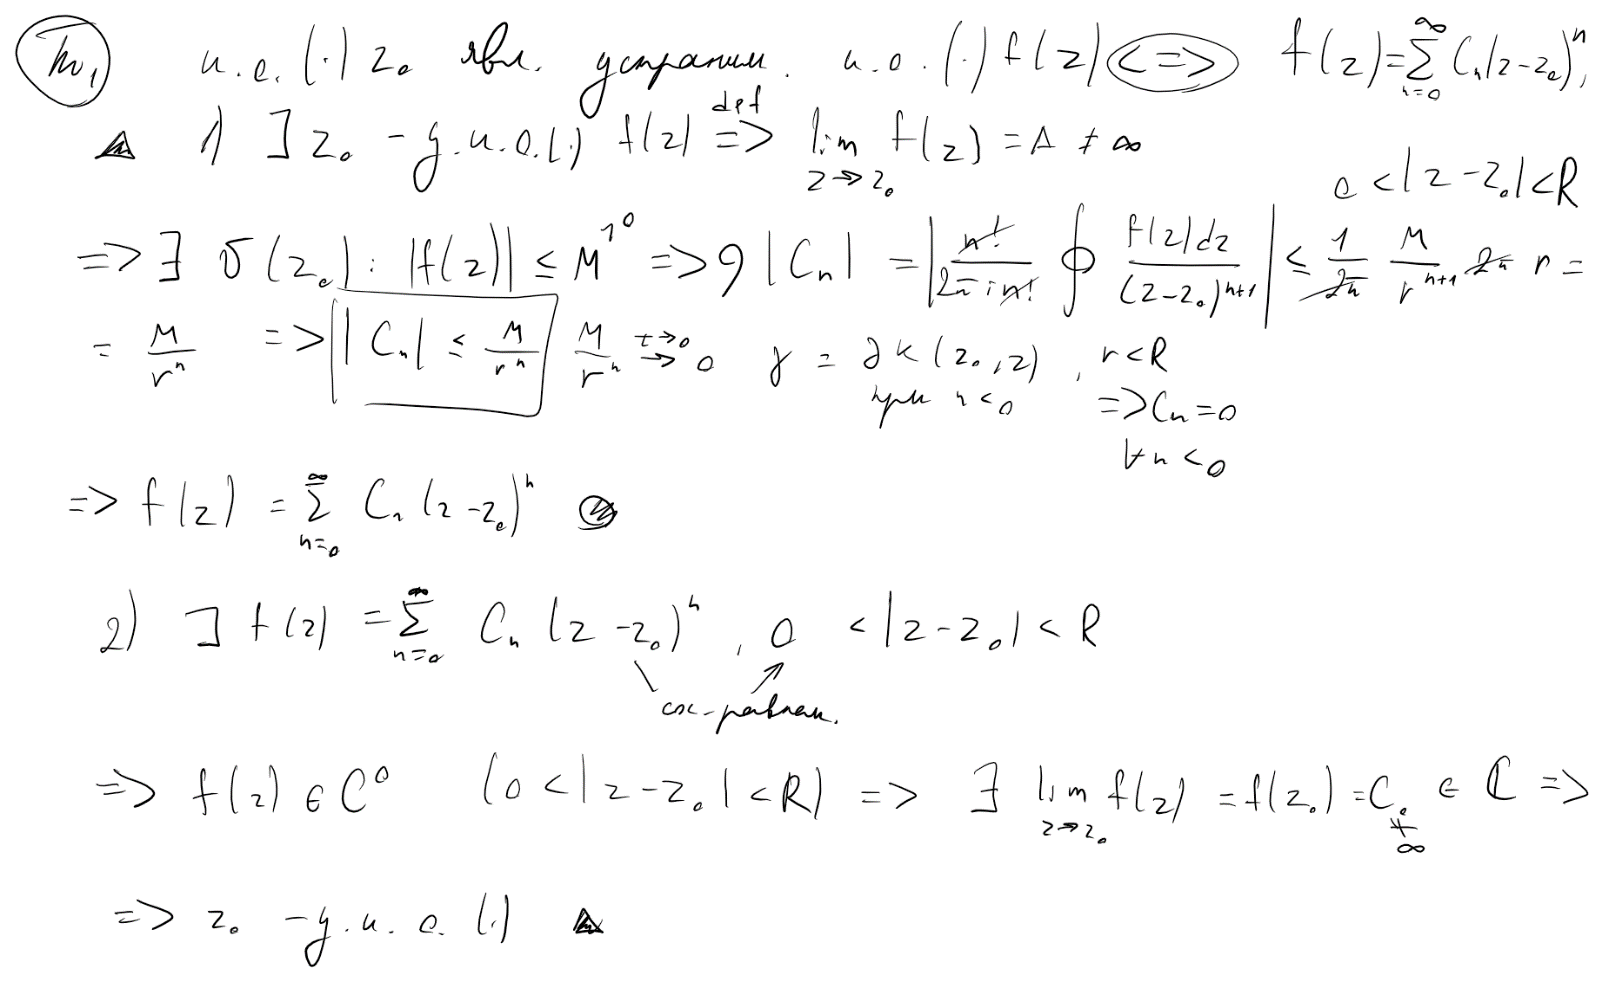 Th₁ и.о. (·) z₀ явл. устраним. и.о. (·) f(z) <=> f(z)=∑_{n=0}^{∞} Cₙ(z-z₀)ⁿ,
0 <|z-z₀|<R
1) ∃ z₀ - у.и.о.(·) f(z) =>^{def} lim_{z→z₀} f(z) = A ≠ ∞
=> ∃ σ(z₀): |f(z)| ≤ M^{>0} => |Cₙ| = |n!/(2πi n!) ∮ f(z)dz/(z-z₀)^{n+1}| ≤ 1/2π M/r^{n+1} 2π r =
= M/rⁿ => |Cₙ| ≤ M/rⁿ M/rⁿ →^{r→0} 0 γ = ∂K(z₀,r), r<R
при n<0 => Cₙ=0
∀n<0
=> f(z) = ∑_{n=0}^{∞} Cₙ(z-z₀)ⁿ
2) ∃ f(z) = ∑_{n=0}^{∞} Cₙ(z-z₀)ⁿ, 0 <|z-z₀|<R
сх-равном.
=> f(z) ∈ C⁰ (0<|z-z₀|<R) => ∃ lim_{z→z₀} f(z) = f(z₀) = C₀ ∈ ℂ =>
≠
∞
=> z₀ - у.и.о. (·)